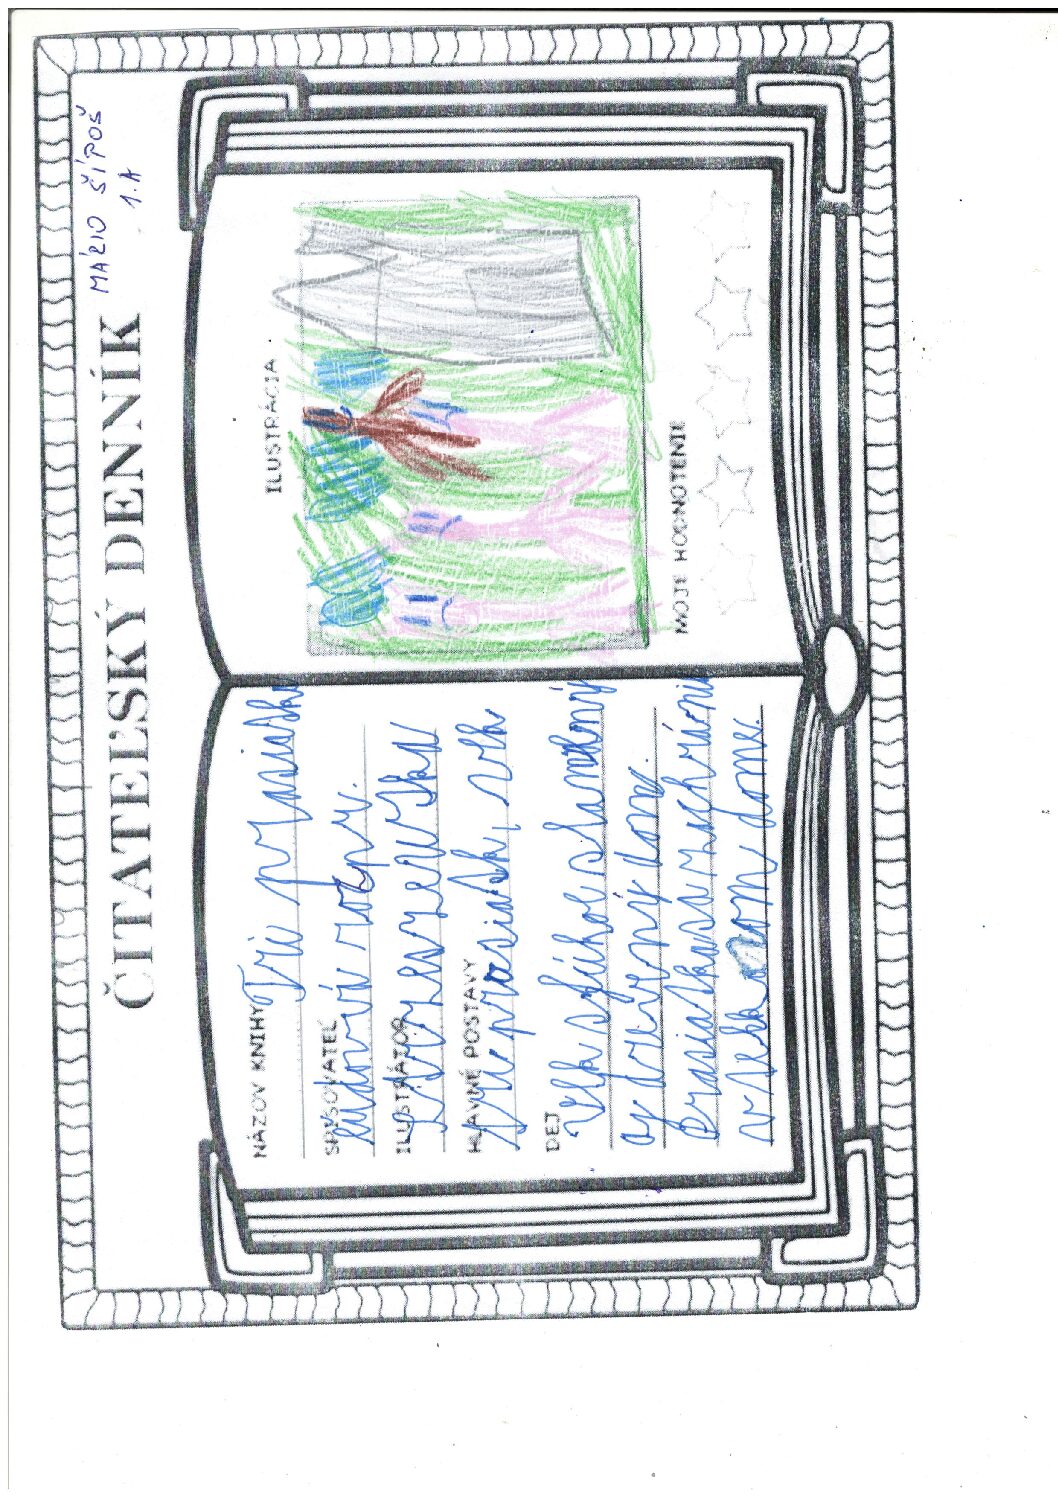 ČITATEĽSKÝ DENNÍK
MÁRIO ŠÍPOŠ
1.A
NÁZOV KNIHY Tri prasiatka
SPISOVATEĽ
ľudová rozpr.
ILUSTRÁTOR
HLAVNÉ POSTAVY
prasiatka, vlk
DEJ
Vlk sfúkol slamený
aj drevený dom.
Prasiatka sa zachránili
v dome.
ILUSTRÁCIA
MOJE HODNOTENIE